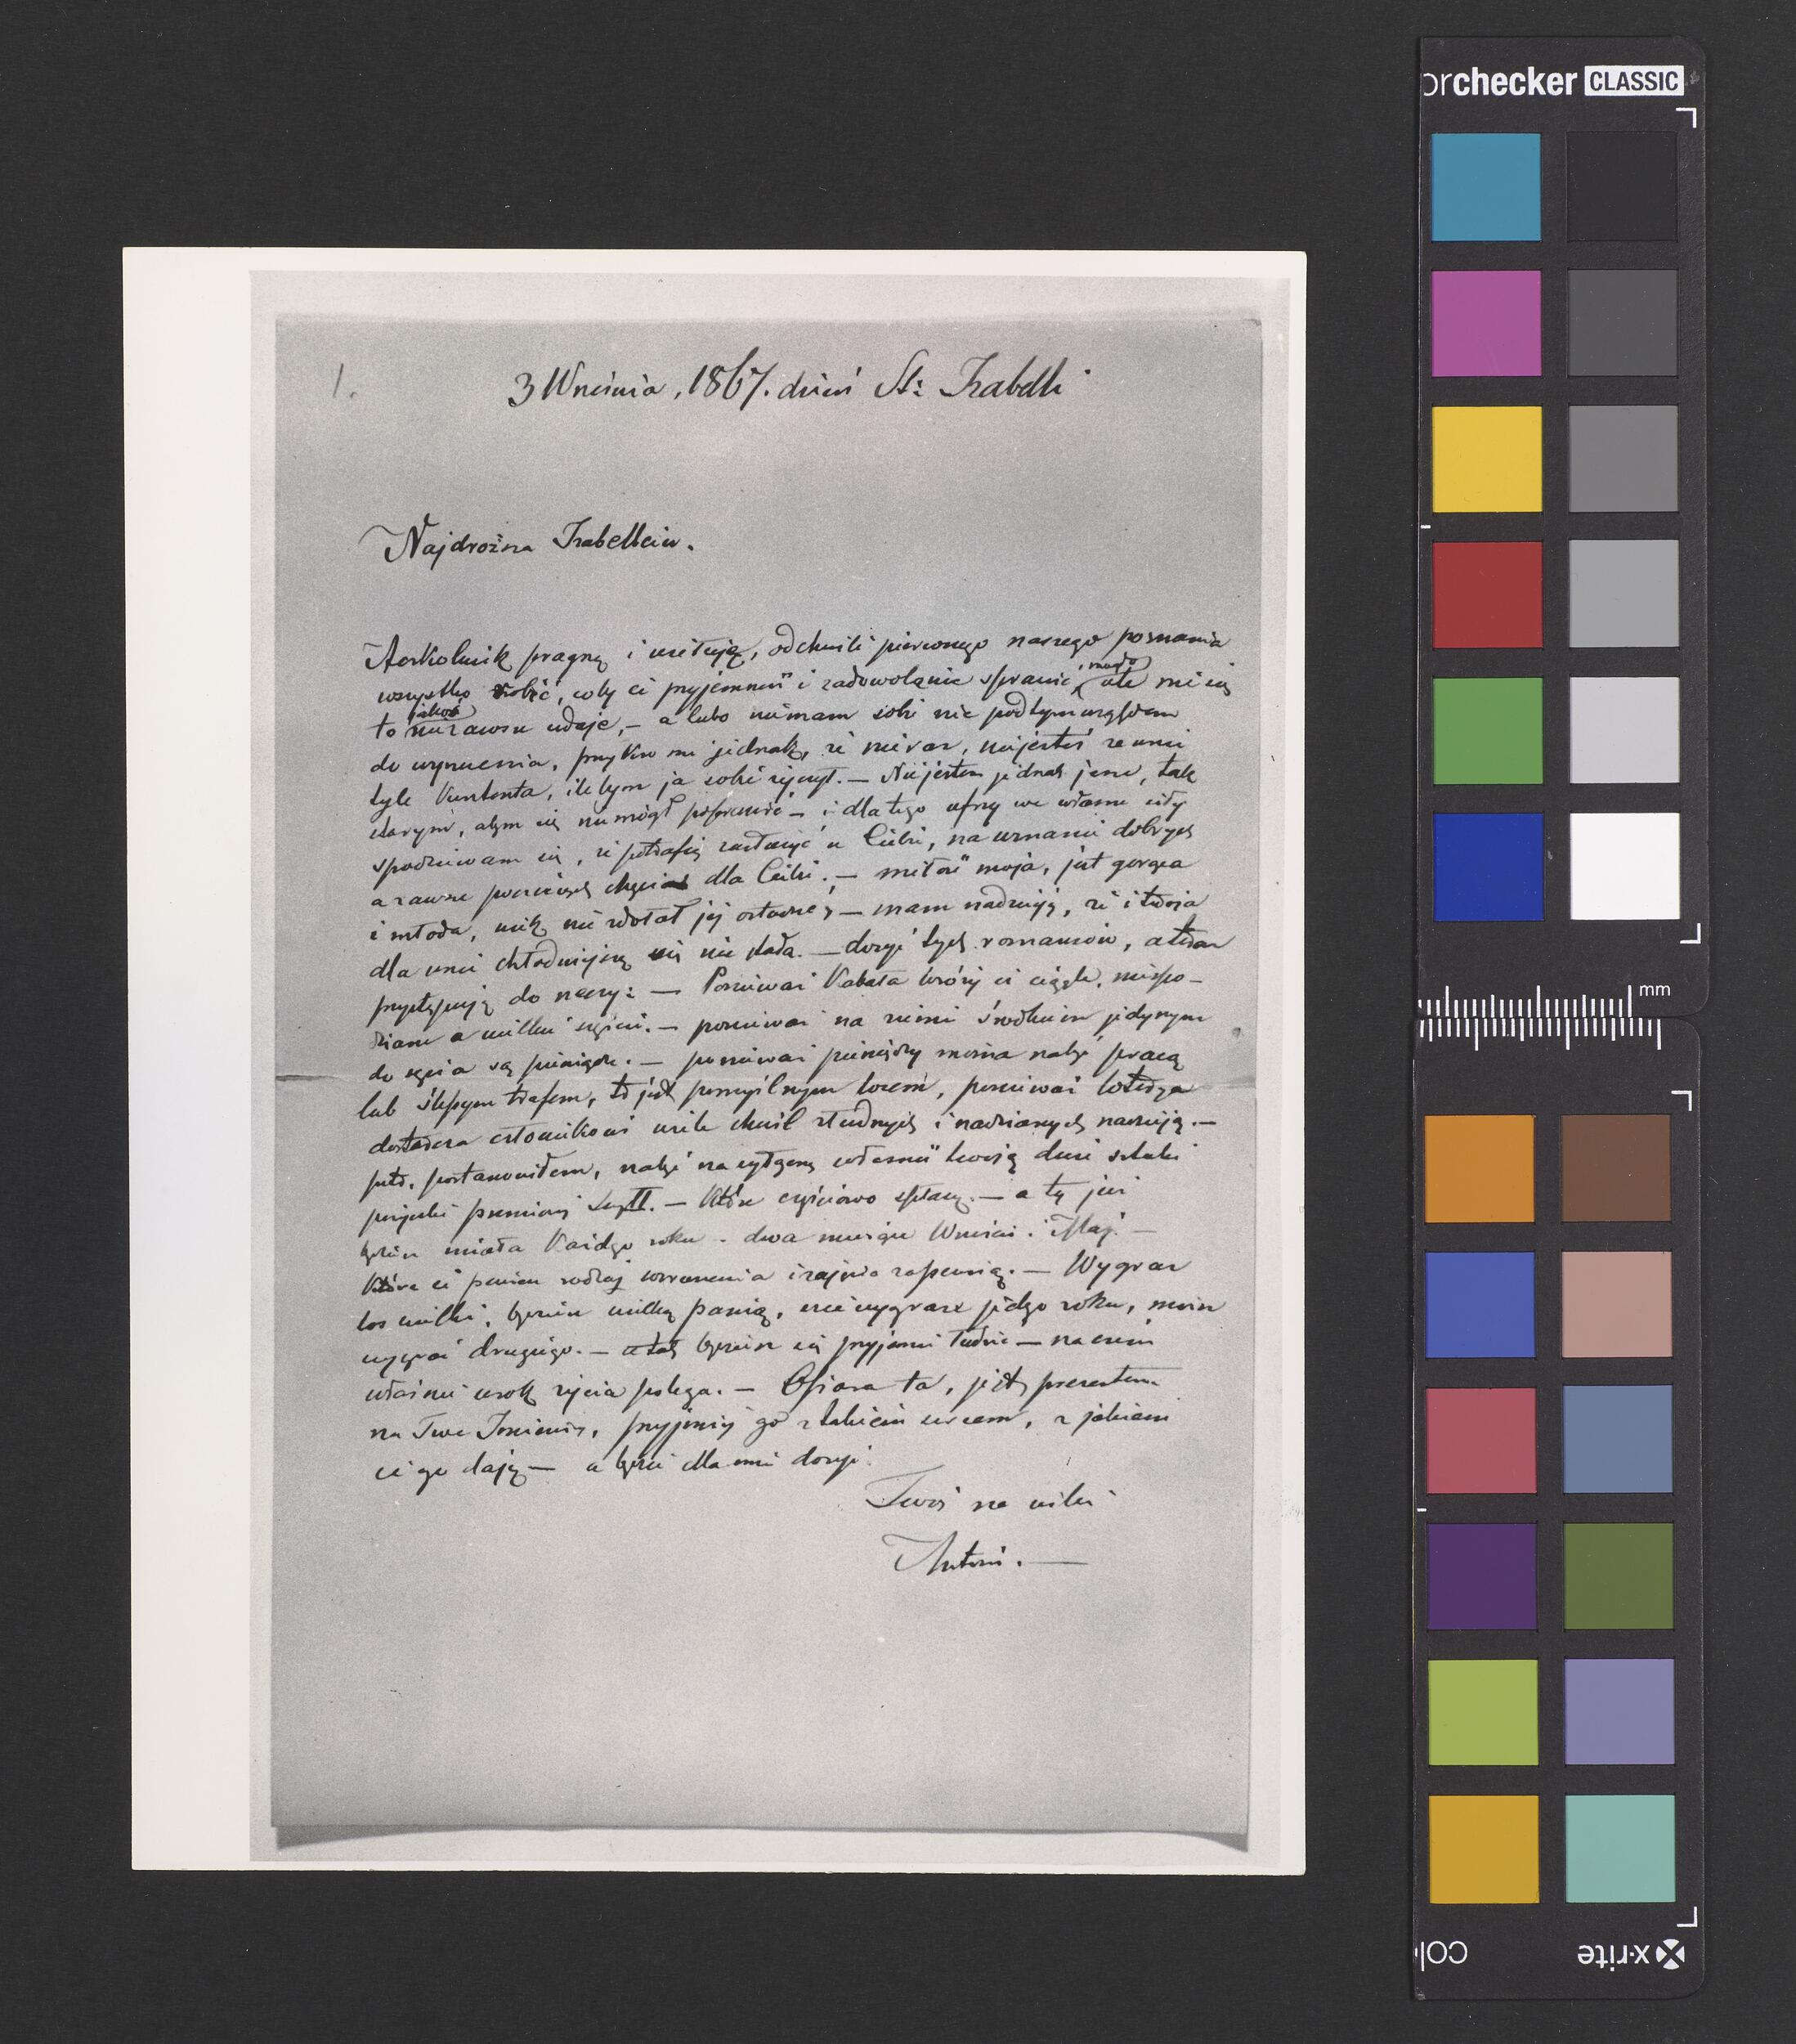 1.
3 Września, 1867. dzień St: Izabelli
Najdroższa Izabellciu.
Aczkolwiek pragnę i usiłuję, od chwili pierwszego naszego poznania
wszystko robić, coby ci przyjemność i zadowolenie sprawić, mało
ale mi się
jakoś
to niezawsze udaje, — a lubo niemam sobie nic pod tym względem
do wyrzucenia, przykro mi jednak, że nieraz, niejesteś ze mnie
tyle kontenta, ile bym ja sobie życzył. — Niejestem jednak jeszcze, tak
starym, abym się nie mógł poprawić — i dla tego ufny we własne siły
spodziewam się, że potrafię zasłużyć u Ciebie, na uznanie dobrych
a zawsze poczciwych chęci dla Ciebie. — miłość moja, jest gorąca
i młoda, wiek nie zdołał jej ostudzić, — mam nadzieję, że i twoja
dla mnie chłodniejszą się nie stała. — dosyć tych romansów, a teraz
przystępuję do rzeczy: — Ponieważ Kabała wróży ci ciągle, niespo-
dziane a wielkie szczęście. — ponieważ na ziemi środkiem jedynym
do szczęścia są pieniądze. — ponieważ pieniędzy można nabyć pracą
lub ślepym trafem, to jest pomyślnym losem, ponieważ loterya
dostarcza człowiekowi wiele chwil złudnych i nadzianych nadzieją. —
przeto, postanowiłem, nabyć na wyłączną własność twoją dwie sztuki
pożyczki premiowej — które częściowo spłacę. — a tę już
będziesz miała każdego roku — dwa miesiące Wrzesień i Maj. —
które ci pewien rodzaj wzruszenia i zajęcia zapewnią. — Wygrasz
los wielki, będziesz wielką panią, nie wygrasz jednego roku, możesz
wygrać drugiego. — a tak będziesz się przyjemnie łudzić — na czem
właśnie urok życia polega. — Ofiara ta, jest prezentem
na Twe Imieniny, przyjmij go z takiem sercem, z jakiem
ci go daję — a będzie dla mnie dosyć.
Twój na wieki
Antoni. —
orchecker CLASSIC
mm
x-rite
col